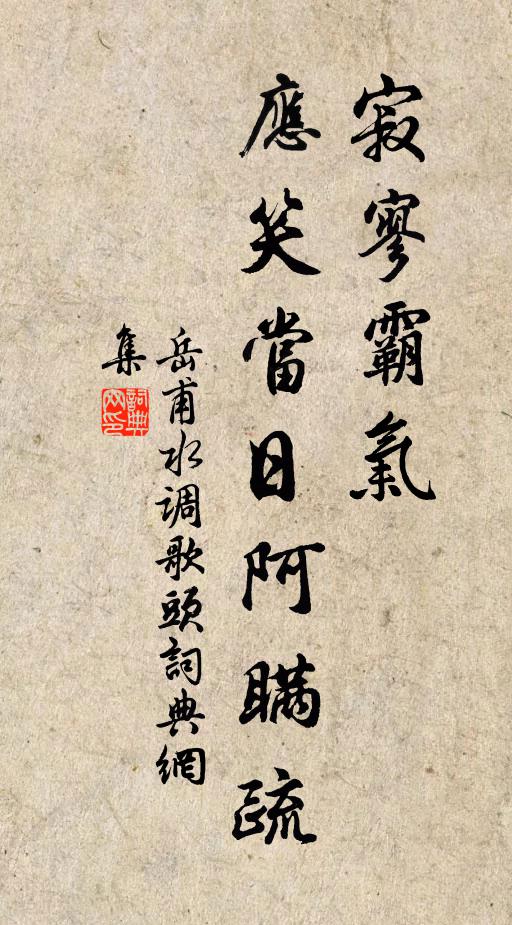 寂寥霸氣
應笑當日阿瞞疏
岳甫水调歌頭詞典網
集
詞典
网印